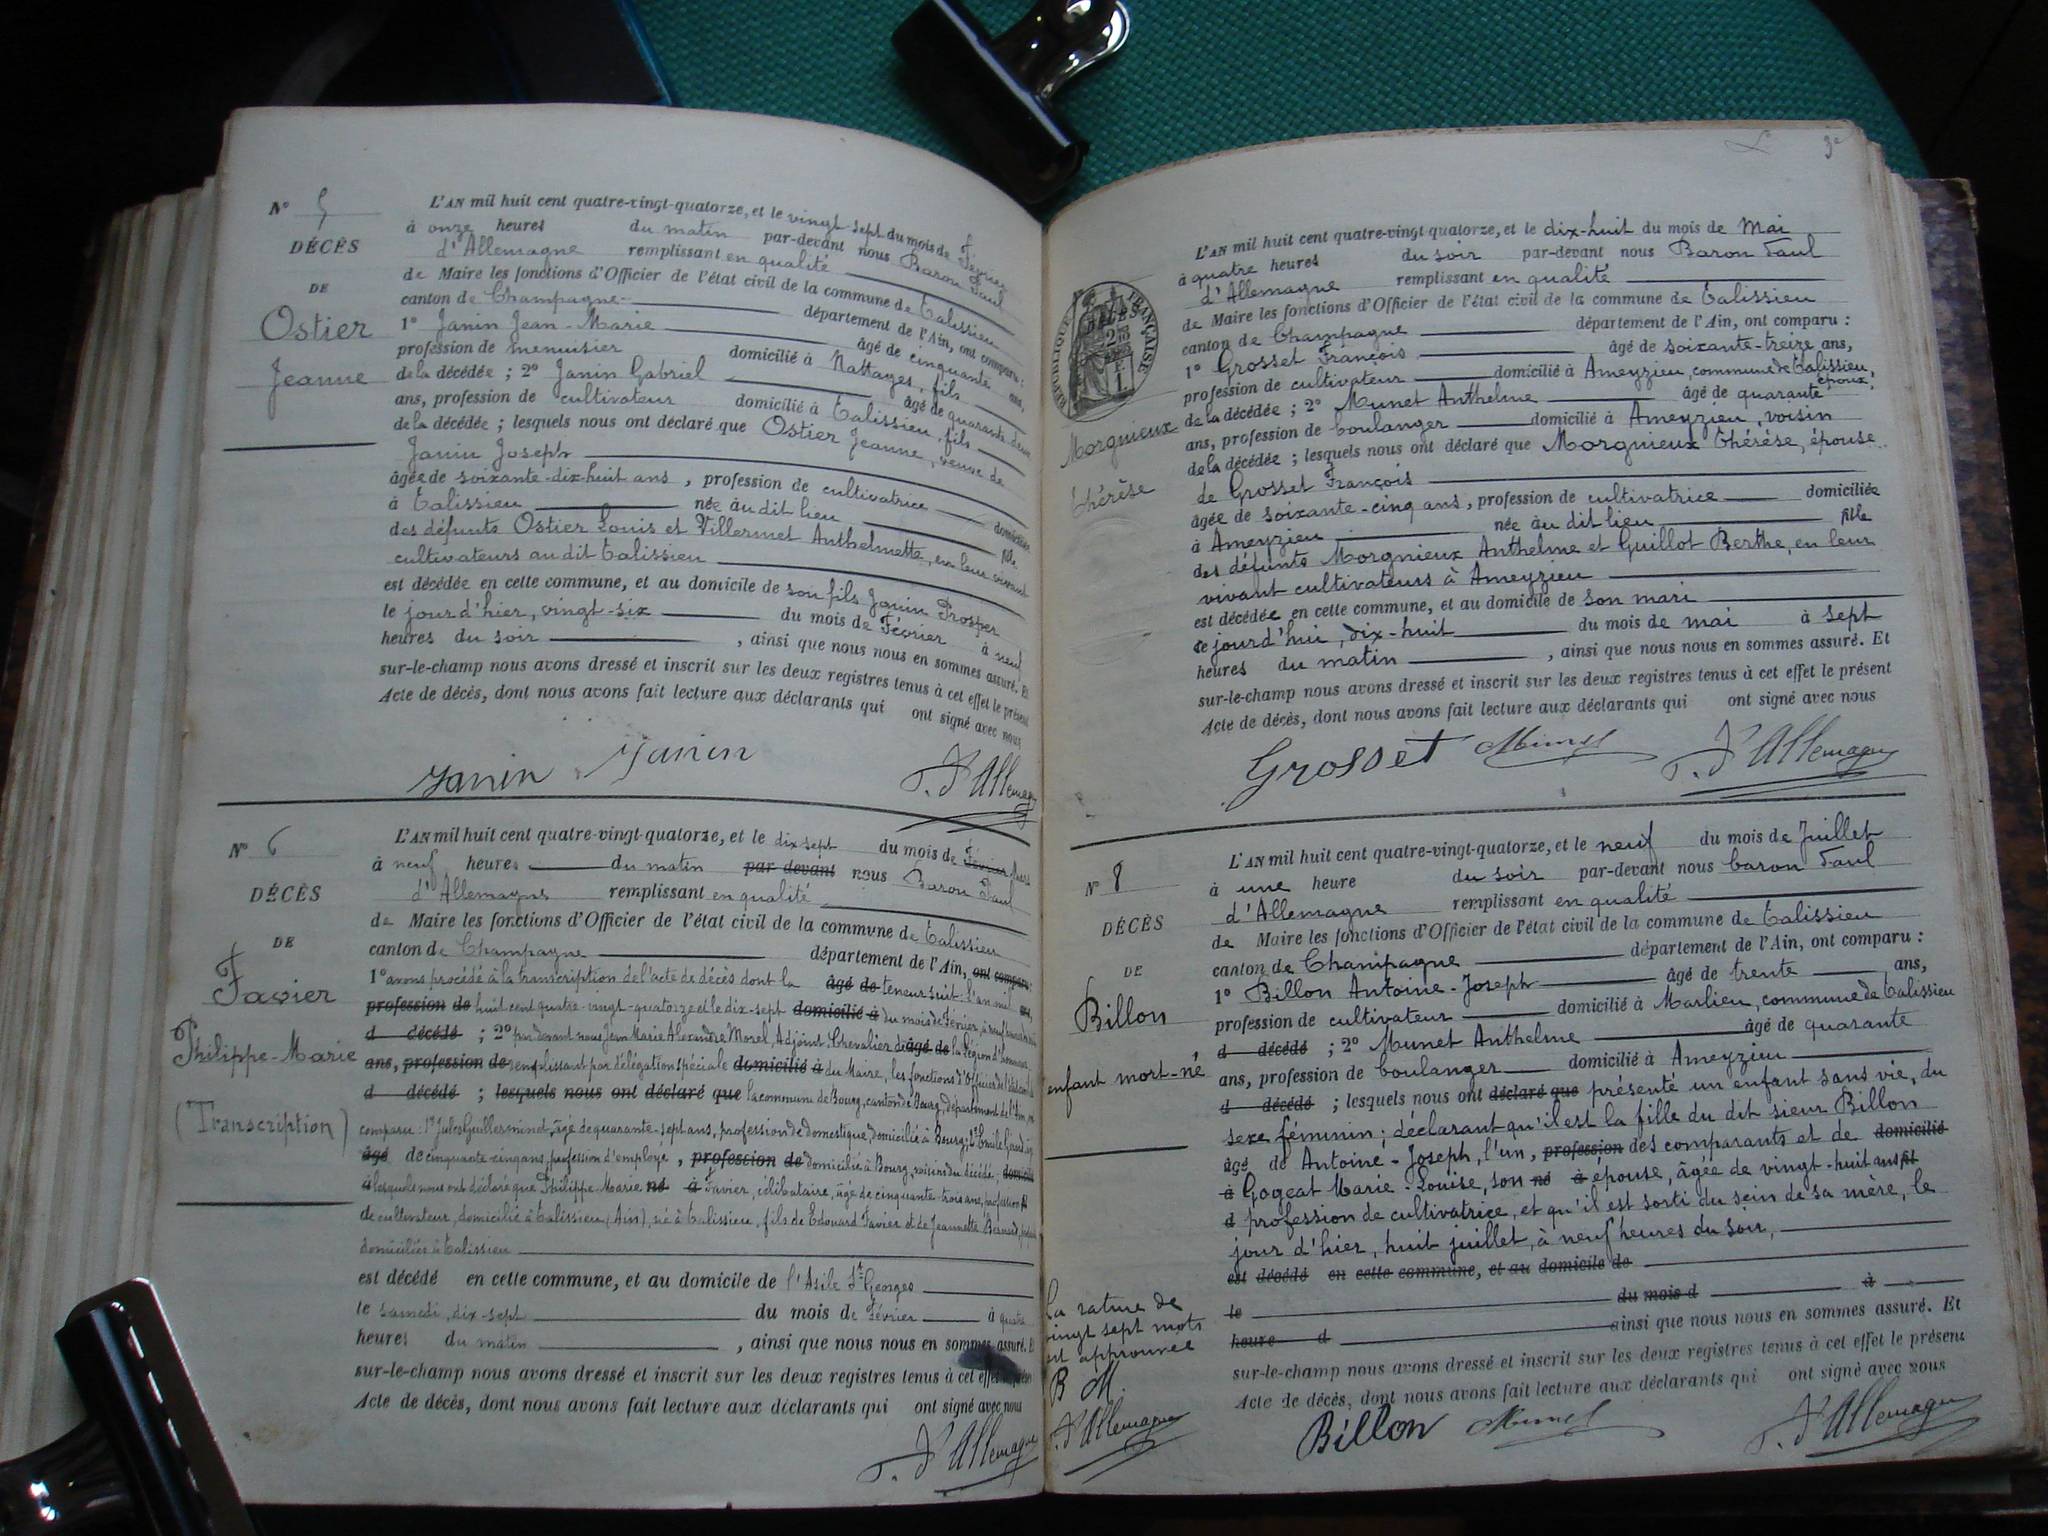 N° 5
DÉCÈS
DE
Ostier
Jeanne
L'AN mil huit cent quatre-vingt-quatorze, et le vingt-sept du mois de Février
à onze heures du matin par-devant nous Baron Paul
d'Allemagne remplissant en qualité
de Maire les fonctions d'Officier de l'état civil de la commune de Talissieu
canton de Champagne département de l'Ain, ont comparu :
1° Janin Jean-Marie âgé de cinquante ans,
profession de menuisier domicilié à Nattages, fils
de la décédée ; 2° Janin Gabriel âgé de quarante-deux
ans, profession de cultivateur domicilié à Talissieu, fils
de la décédée ; lesquels nous ont déclaré que Ostier Jeanne, veuve de
Janin Joseph
âgée de soixante-dix-huit ans, profession de cultivatrice domiciliée
à Talissieu née au dit lieu fille
des défunts Ostier Louis et Villermet Anthelmette, en leur vivant
cultivateurs au dit Talissieu
est décédée en cette commune, et au domicile de son fils Janin Prosper
le jour d'hier, vingt-six du mois de Février à neuf
heures du soir , ainsi que nous nous en sommes assuré. Et
sur-le-champ nous avons dressé et inscrit sur les deux registres tenus à cet effet le présent
Acte de décès, dont nous avons fait lecture aux déclarants qui ont signé avec nous
Janin Janin P. d'Allemagne
N° 6
DÉCÈS
DE
Favier
Philippe-Marie
(Transcription)
L'AN mil huit cent quatre-vingt-quatorze, et le dix sept du mois de Février Mars
à neuf heures du matin par devant nous Baron Paul
d'Allemagne remplissant en qualité
de Maire les fonctions d'Officier de l'état civil de la commune de Talissieu
canton de Champagne département de l'Ain, ont comparu :
1° avons procédé à la transcription de l'acte de décès dont la âgé de teneur suit : l'an mil
profession de huit cent quatre-vingt-quatorze et le dix-sept domicilié à du mois de Février, à neuf heures du
d décédé ; 2° par devant nous Jean Marie Alexandre Morel, Adjoint, Chevalier de âgé de la Légion d'honneur
ans, profession de remplissant par délégation spéciale domicilié à du Maire, les fonctions d'Officier de l'état civil
d décédé ; lesquels nous ont déclaré que la commune de Bourg, canton de Bourg, département de l'Ain, ont
comparu : 1° Jules Guillerminet, âgé de quarante-sept ans, profession de domestique, domicilié à Bourg; 2° Emile
âgé de cinquante cinq ans, profession d'employé, profession de domicilié à Bourg, voisins du décédé, domicilié
à lesquels nous ont déclaré que Philippe-Marie né à Favier, célibataire, âgé de cinquante-trois ans, profession
de cultivateur, domicilié à Talissieu (Ain), né à Talissieu, fils de Edouard Favier et de Jeannette
domiciliés à Talissieu
est décédé en cette commune, et au domicile de l'Asile St Georges
le samedi, dix-sept du mois de Février à quatre
heures du matin , ainsi que nous nous en sommes assuré. Et
sur-le-champ nous avons dressé et inscrit sur les deux registres tenus à cet effet
Acte de décès, dont nous avons fait lecture aux déclarants qui ont signé avec nous
P. d'Allemagne
3e
RÉPUBLIQUE FRANÇAISE
DÉCIMES
Morgnieux
Thérèse
L'AN mil huit cent quatre-vingt quatorze, et le dix-huit du mois de Mai
à quatre heures du soir par-devant nous Baron Paul
d'Allemagne remplissant en qualité
de Maire les fonctions d'Officier de l'état civil de la commune de Talissieu
canton de Champagne département de l'Ain, ont comparu :
1° Grosset François âgé de soixante-treize ans,
profession de cultivateur domicilié à Ameyzieu, commune de Talissieu, époux,
de la décédée ; 2° Munet Anthelme âgé de quarante
ans, profession de boulanger domicilié à Ameyzieu, voisin
de la décédée ; lesquels nous ont déclaré que Morgnieux Thérèse, épouse
de Grosset François
âgée de soixante-cinq ans, profession de cultivatrice domiciliée
à Ameyzieu née au dit lieu fille
des défunts Morgnieux Anthelme et Guillot Berthe, en leur
vivant cultivateurs à Ameyzieu
est décédée en cette commune, et au domicile de son mari
ce jourd'hui, dix-huit du mois de mai à sept
heures du matin , ainsi que nous nous en sommes assuré. Et
sur-le-champ nous avons dressé et inscrit sur les deux registres tenus à cet effet le présent
Acte de décès, dont nous avons fait lecture aux déclarants qui ont signé avec nous
Grosset Munet P. d'Allemagne
N° 8
DÉCÈS
DE
Billon
enfant mort-né
L'AN mil huit cent quatre-vingt-quatorze, et le neuf du mois de Juillet
à une heure du soir par-devant nous baron Paul
d'Allemagne remplissant en qualité
de Maire les fonctions d'Officier de l'état civil de la commune de Talissieu
canton de Champagne département de l'Ain, ont comparu :
1° Billon Antoine-Joseph âgé de trente ans,
profession de cultivateur domicilié à Marlieu, commune de Talissieu
d décédé ; 2° Munet Anthelme âgé de quarante
ans, profession de boulanger domicilié à Ameyzieu
d décédé ; lesquels nous ont déclaré que présenté un enfant sans vie, du
sexe féminin ; déclarant qu'il est la fille du dit sieur Billon
âgé de Antoine-Joseph, l'un, profession des comparants et de domicilié
à Gogeat Marie-Louise, son né à épouse, âgée de vingt-huit ans fil
d profession de cultivatrice, et qu'il est sorti du sein de sa mère, le
jour d'hier, huit juillet, à neuf heures du soir,
est décédé en cette commune, et au domicile de
le du mois d à
heure d ainsi que nous nous en sommes assuré. Et
sur-le-champ nous avons dressé et inscrit sur les deux registres tenus à cet effet le présent
Acte de décès, dont nous avons fait lecture aux déclarants qui ont signé avec nous
Billon Munet P. d'Allemagne
La rature de
vingt sept mots
est approuvée
B M.
P. d'Allemagne